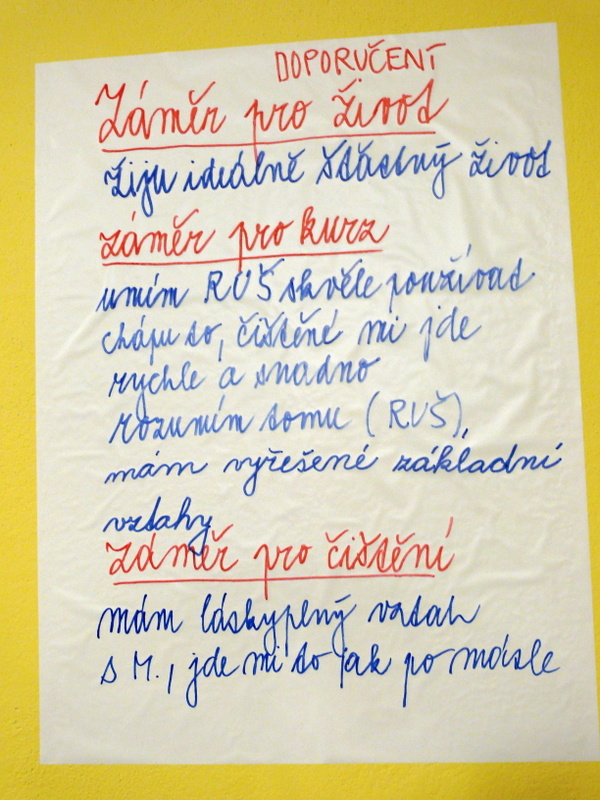 DOPORUČENÍ
Záměr pro život
žiju ideálně šťastný život
záměr pro kurz
umím RUŠ skvěle používat
chápu to, čištěné mi jde
rychle a snadno
rozumím tomu (RUŠ),
mám vyřešené základní
vztahy
záměr pro čištění
mám láskyplný vztah
s M., jde mi to jak po másle